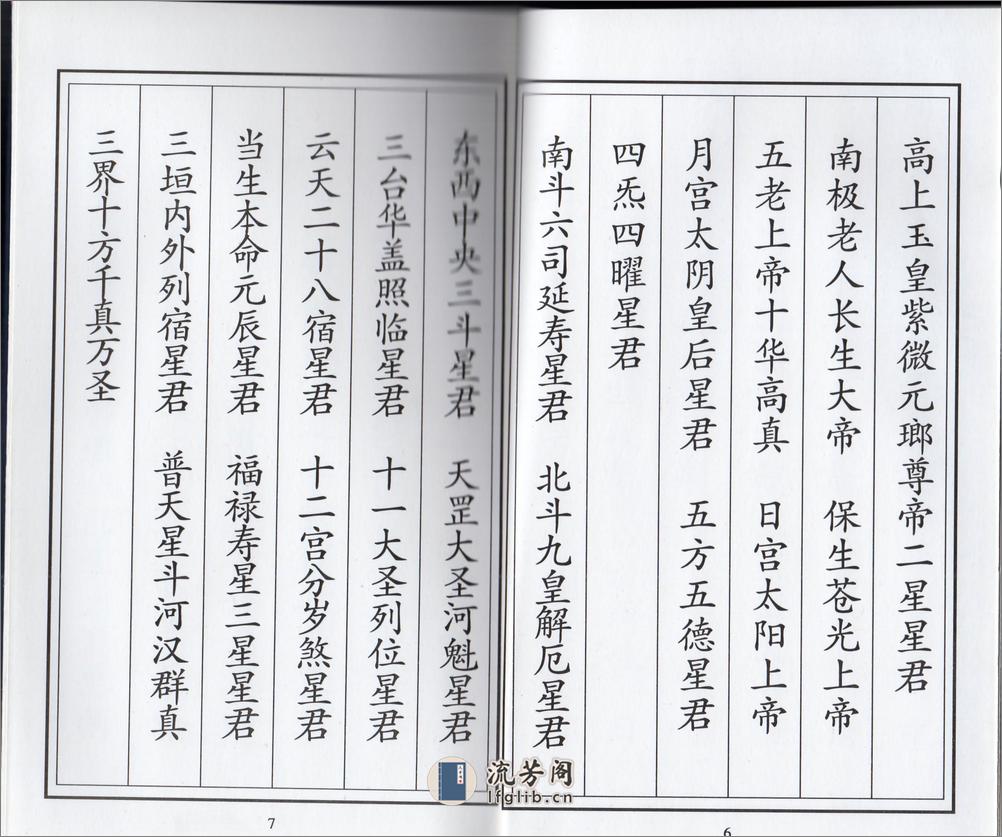 高上玉皇紫微元瑯尊帝二星星君
南极老人长生大帝　保生苍光上帝
五老上帝十华高真　日宫太阳上帝
月宫太阴皇后星君　五方五德星君
四炁四曜星君
南斗六司延寿星君　北斗九皇解厄星君
6
东西中央三斗星君　天罡大圣河魁星君
三台华盖照临星君　十一大圣列位星君
云天二十八宿星君　十二宫分岁煞星君
当生本命元辰星君　福禄寿星三星星君
三垣内外列宿星君　普天星斗河汉群真
三界十方千真万圣
7
流芳阁
lfglib.cn